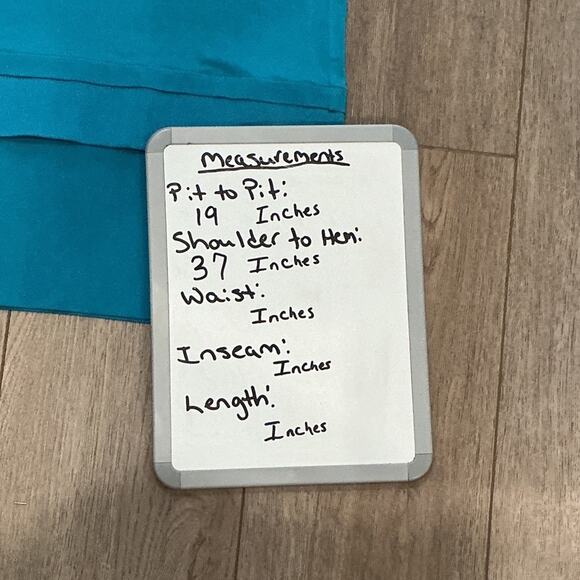 Measurements
Pit to Pit:
19 Inches
Shoulder to Hem:
37 Inches
Waist:
Inches
Inseam:
Inches
Length:
Inches